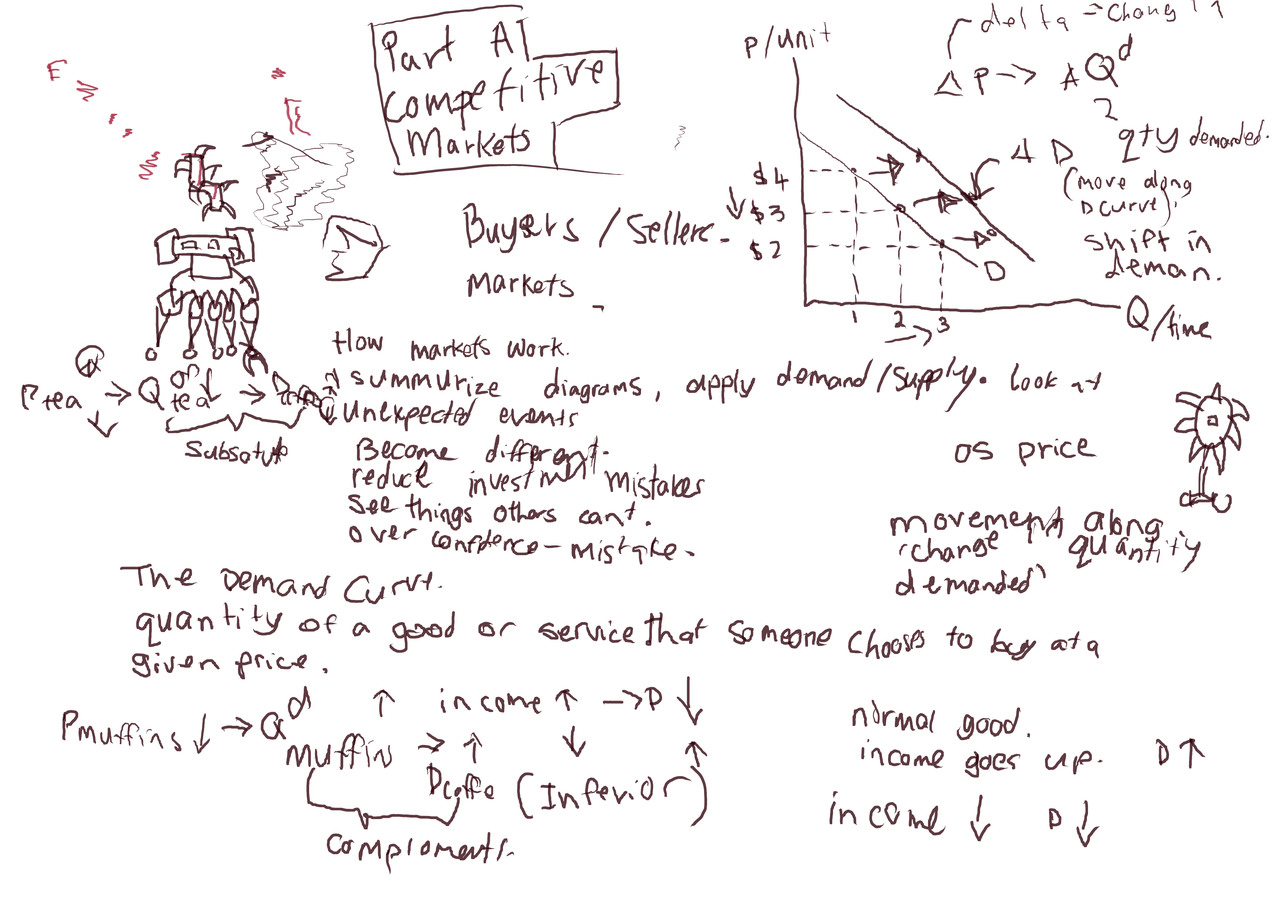 Part A
Competitive
Markets
Buyers / Sellers.
Markets
How markets work.
summurize diagrams, apply demand/supply. look at
unexpected events
Become different.
reduce investment mistakes
See things others cant.
over confidence - mistake -
P/unit
$4
$3
$2
1 2 3
Q/time
D
delta = chang
Δ P → Δ Q^d
qty demanded.
Δ D
(move along
D curve)
shift in
deman.
os price
movement along
"change quantity
demanded"
P tea ↓ → Q tea → D
Subsatut
The Demand Curve.
quantity of a good or service that someone chooses to buy at a
given price.
P muffins ↓ → Q^d muffin ↑ → D coffe ↑
complements.
income ↑ → D ↓
↓ ↑
(Inferior)
normal good.
income goes up. D ↑
income ↓ D ↓